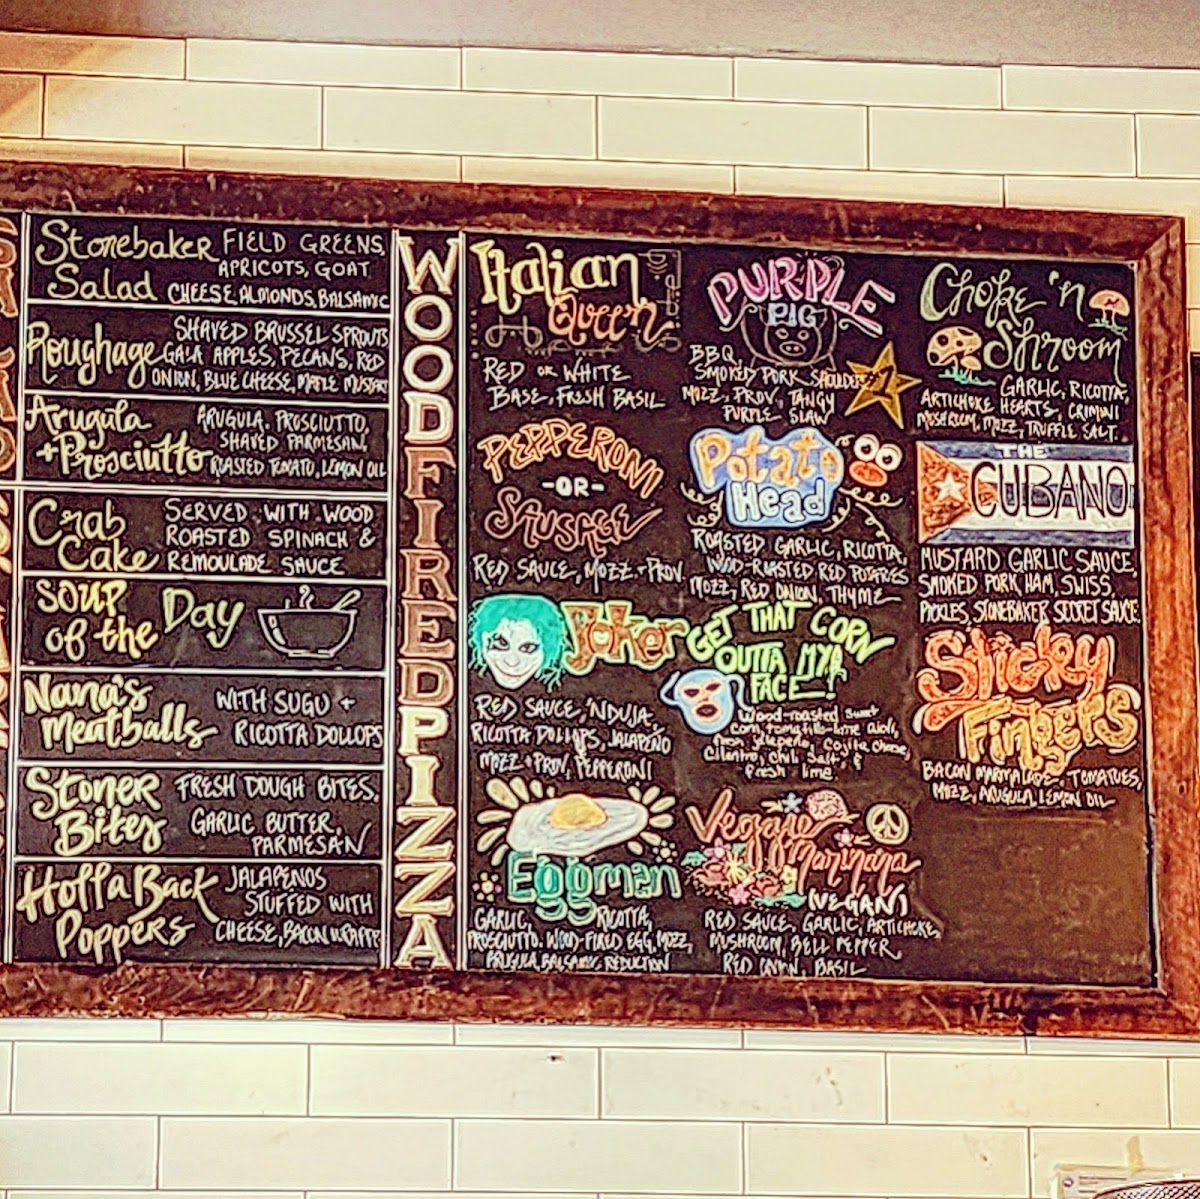 Stonebaker Salad
FIELD GREENS,
APRICOTS, GOAT
CHEESE, ALMONDS, BALSAMIC
Roughage
SHAVED BRUSSEL SPROUTS
GALA APPLES, PECANS, RED
ONION, BLUE CHEESE, MAPLE MUSTARD
Arugula
+ Prosciutto
ARUGULA, PROSCIUTTO,
SHAVED PARMESAN,
ROASTED TOMATO, LEMON OIL
Crab
Cake
SERVED WITH WOOD
ROASTED SPINACH &
REMOULADE SAUCE
SOUP
of the Day
Nana's
Meatballs
WITH SUGU +
RICOTTA DOLLOPS
Stoner
Bites
FRESH DOUGH BITES,
GARLIC BUTTER,
PARMESAN
Holla Back
Poppers
JALAPENOS
STUFFED WITH
CHEESE, BACON WRAPPED
WOODFIRED PIZZA
Italian
Queen
RED OR WHITE
BASE, FRESH BASIL
PEPPERONI
-OR-
SAUSAGE
RED SAUCE, MOZZ + PROV.
Joker
RED SAUCE, 'NDUJA,
RICOTTA DOLLOPS, JALAPEÑO
MOZZ + PROV, PEPPERONI
Eggman
GARLIC, RICOTTA,
PROSCIUTTO. WOOD-FIRED EGG, MOZZ,
ARUGULA, BALSAMIC REDUCTION
PURPLE
PIG
#1
BBQ,
SMOKED PORK SHOULDER
MOZZ, PROV, TANGY
PURPLE SLAW
Potato
Head
ROASTED GARLIC, RICOTTA,
WOOD-ROASTED RED POTATOES
MOZZ, RED ONION, THYME
GET THAT CORN
OUTTA MY
FACE!
Wood-roasted sweet
corn, tomatillo-lime aioli,
fresh jalapeño, Cojita cheese,
Cilantro, chili salt, &
fresh lime
Veggie
Marinara
(VEGAN)
RED SAUCE, GARLIC, ARTICHOKE,
MUSHROOM, BELL PEPPER
RED ONION, BASIL
Choke 'n
Shroom
GARLIC, RICOTTA,
ARTICHOKE HEARTS, CRIMINI
MUSHROOM, MOZZ, TRUFFLE SALT.
THE
CUBANO
MUSTARD GARLIC SAUCE,
SMOKED PORK, HAM, SWISS,
PICKLES, STONEBAKER SECRET SAUCE.
Sticky
Fingers
BACON MARMALADE, TOMATOES,
MOZZ, ARUGULA, LEMON OIL